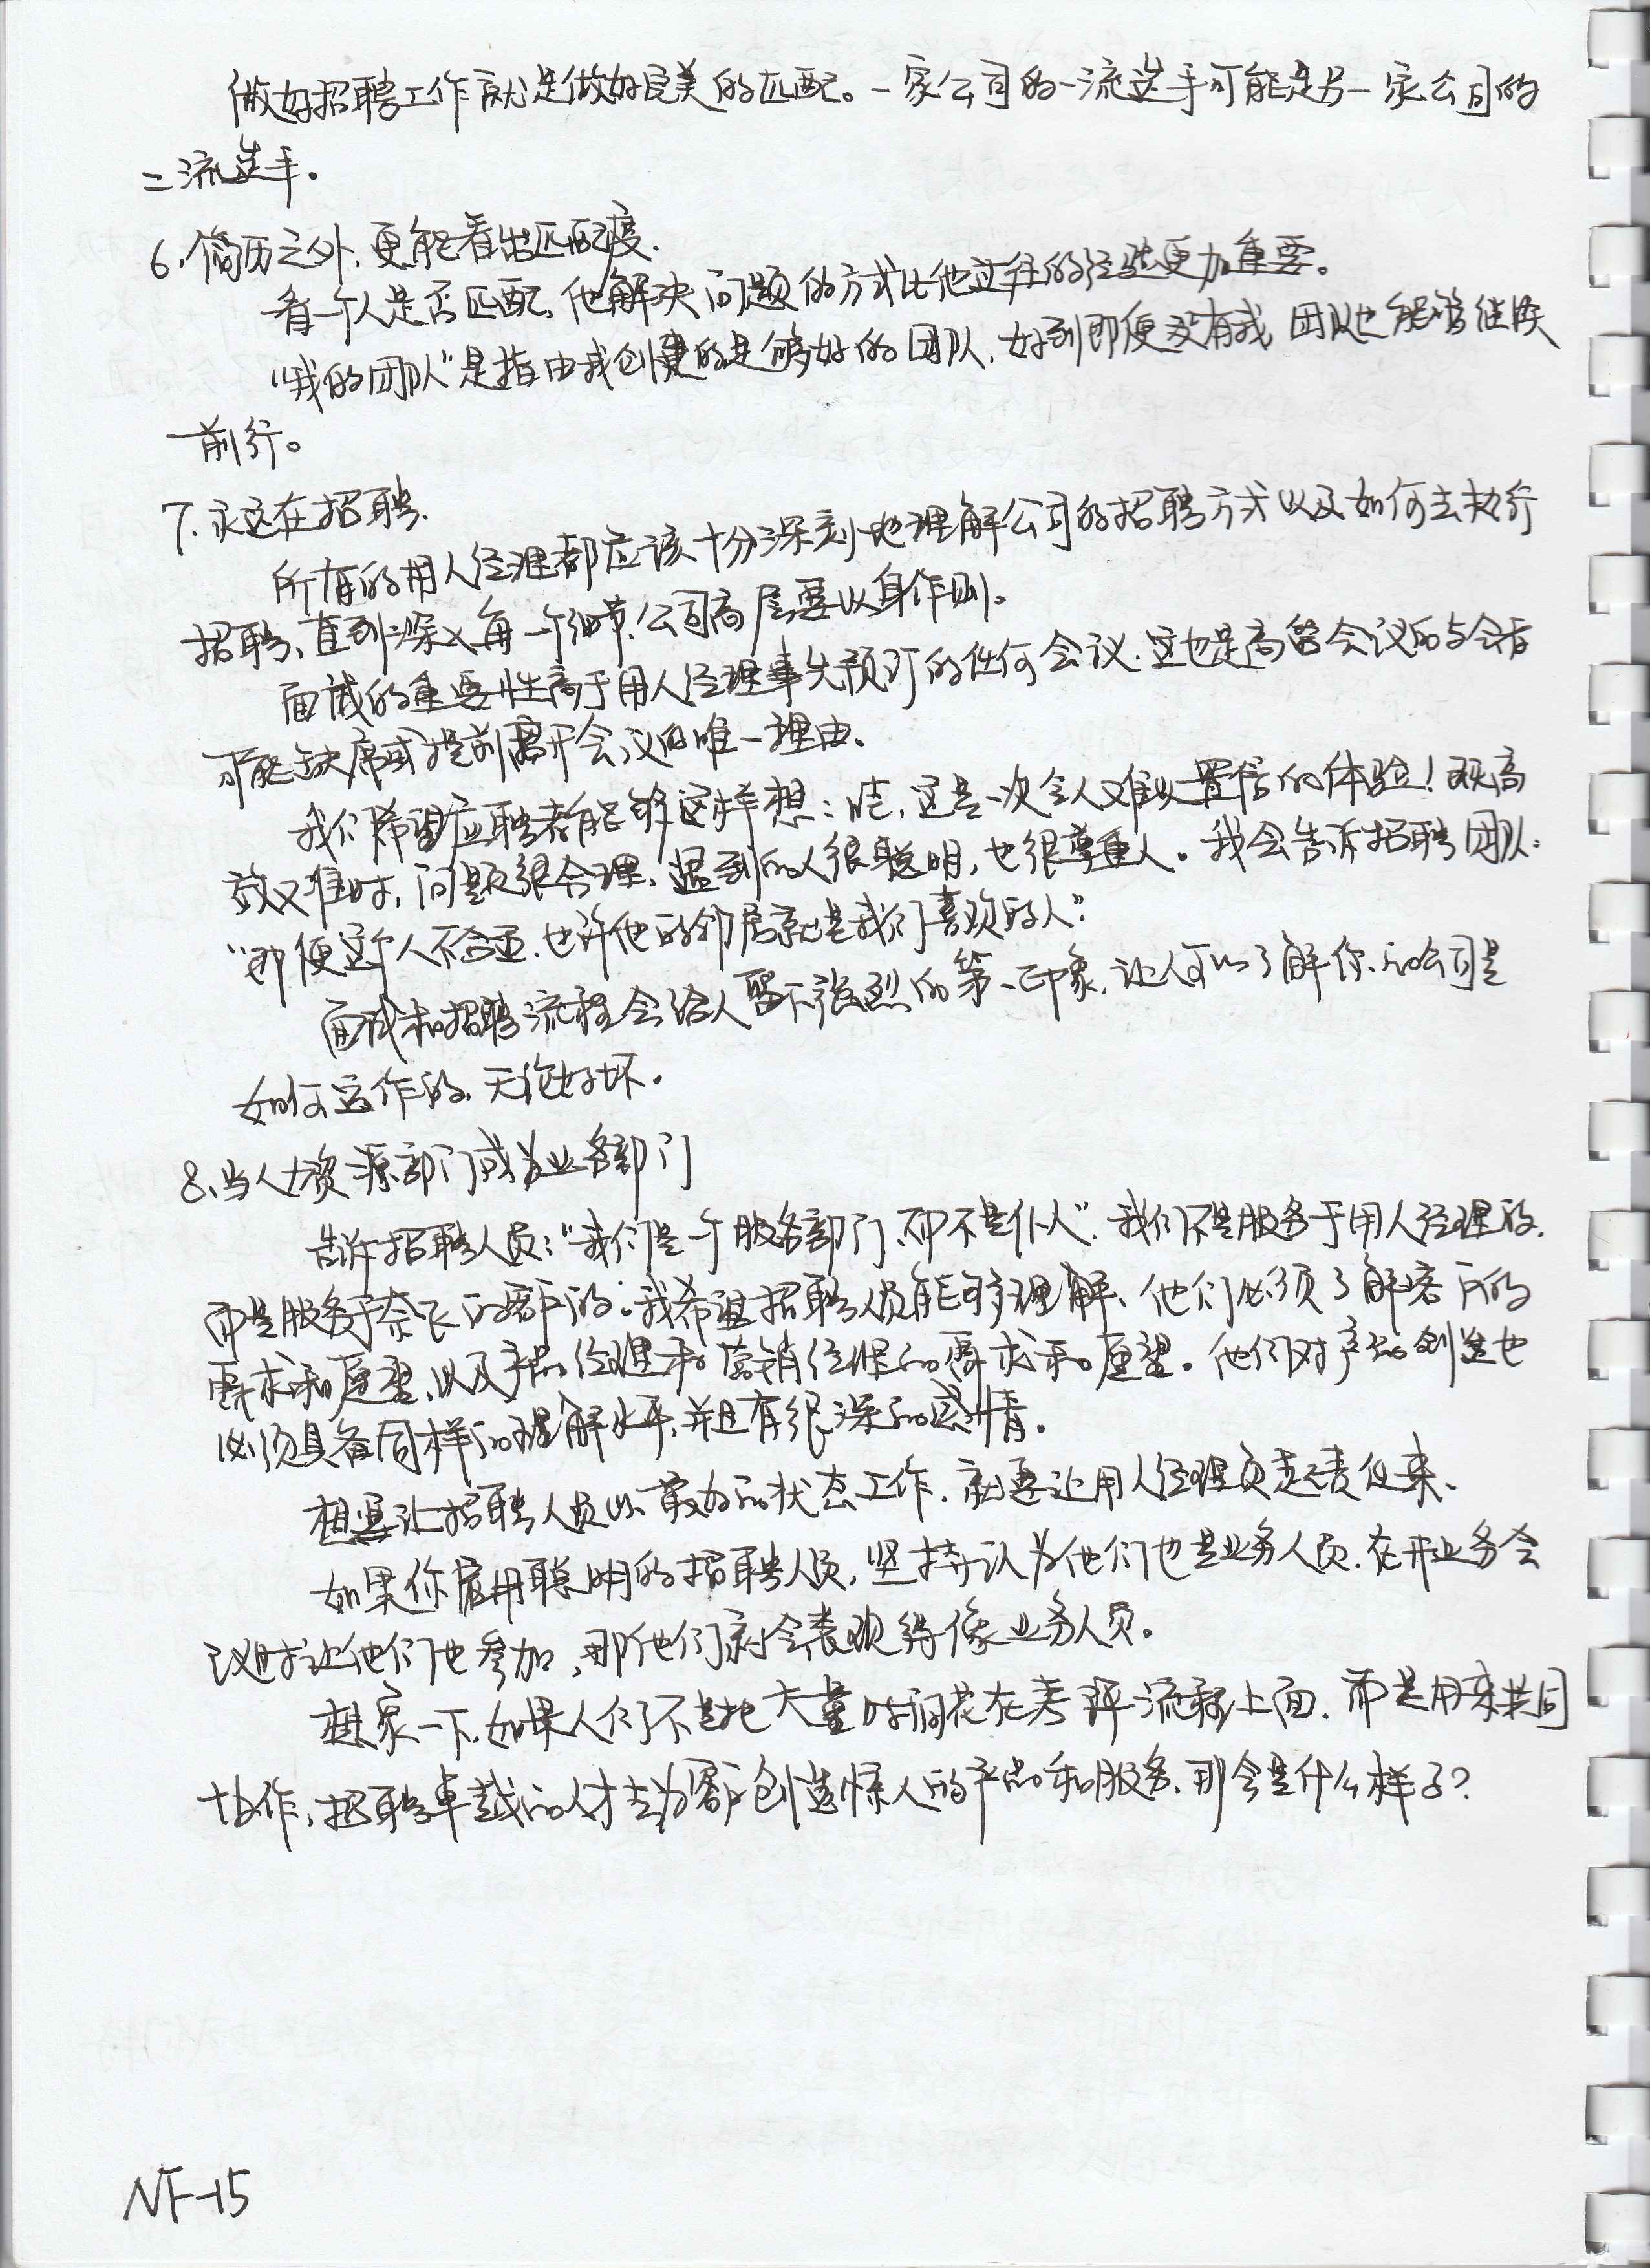 做好招聘工作就是做好完美的匹配。一家公司的一流选手可能是另一家公司的
二流选手。
6、简历之外，更能看出匹配度．
看一个人是否匹配，他解决问题的方式比他过往的经验更加重要。
“我的团队”是指由我创建的足够好的团队，好到即便没有我，团队也能够继续
前行。
7、永远在招聘．
所有的用人经理都应该十分深刻地理解公司的招聘方式以及如何去执行
招聘、直到深入每一个细节，公司高层要以身作则。
面试的重要性高于用人经理事先预订的任何会议．这也是高管会议的与会者
可能缺席或提前离开会议的唯一理由。
我们希望应聘者能够这样想：哇，这是一次令人难以置信的体验！既高
效又准时，问题很合理，遇到的人很聪明，也很尊重人。我会告诉招聘团队：
“即便这个人不合适，也许他的邻居就是我们喜欢的人”．
面试和招聘流程会给人留下强烈的第一印象，让人可以了解你的公司是
如何运作的，无论好坏．
8、当人力资源部门成为业务部门
告诉招聘人员：“我们是个服务部门，却不是仆人”．我们不是服务于用人经理的，
而是服务于奈飞的客户的．我希望招聘人员能够理解，他们必须了解客户的
需求和愿望，以及产品经理和营销经理的需求和愿望。他们对产品创造也
必须具备同样的理解水平，并且有很深的感情。
想要让招聘人员以最好的状态工作，就要让用人经理负起责任来．
如果你雇用聪明的招聘人员，坚持认为他们也是业务人员，在开业务会
议时让他们也参加，那他们就会表现得像业务人员。
想象一下，如果人们不是把大量时间花在考评流程上面，而是用来共同
协作，招聘卓越的人才去为客户创造惊人的产品和服务，那会是什么样子？
NF-15